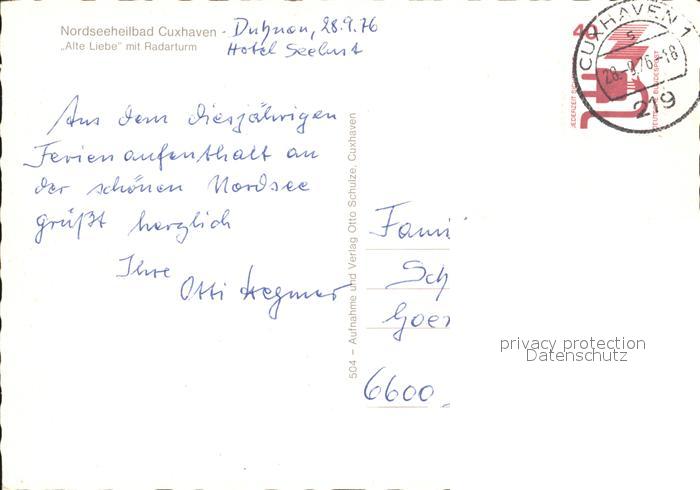 Nordseeheilbad Cuxhaven - Duhnen, 28.9.76
„Alte Liebe" mit Radarturm Hotel Seelust
Aus dem diesjährigen
Ferienaufenthalt an
der schönen Nordsee
grüßt herzlich
Ihre
Otti
504 – Aufnahme und Verlag Otto Schulze, Cuxhaven
Fami
Sch
Goe
6600
CUXHAVEN 1
s
28.-9.76.-18
219
40
JEDERZEIT SICH
DEUTSCHE BUNDESPOST
privacy protection
Datenschutz